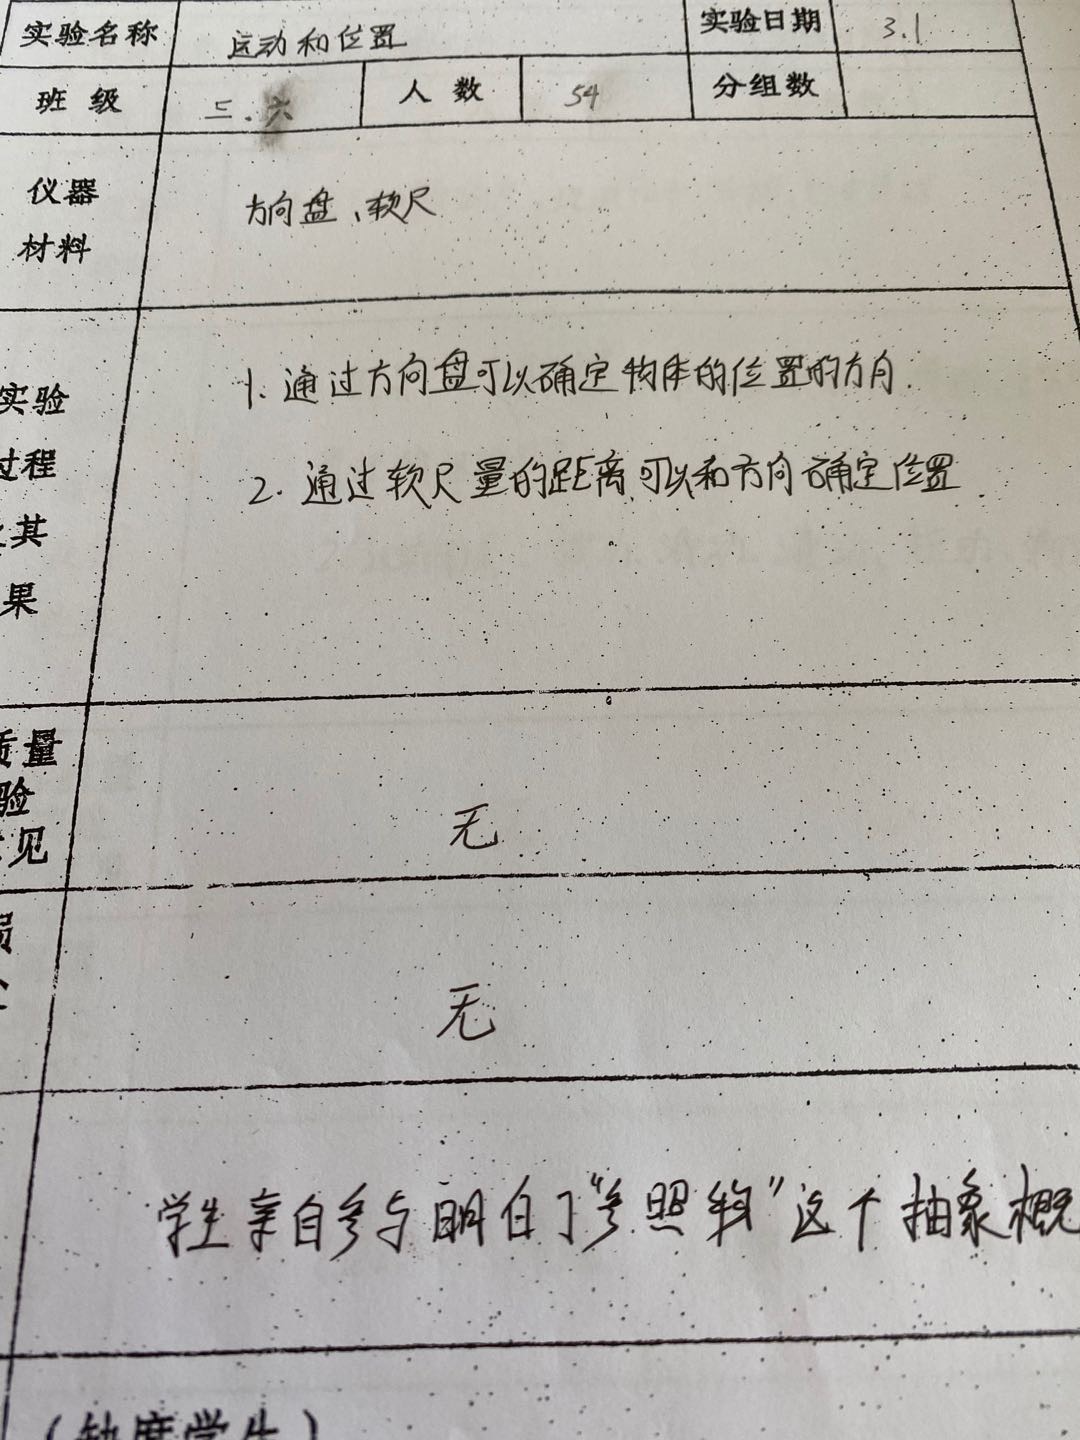 实验名称 运动和位置 实验日期 3.1
班级 三.六 人数 54 分组数
仪器
材料
方向盘、软尺
实验
过程
其
果
1. 通过方向盘可以确定物体的位置的方向.
2. 通过软尺量的距离可以和方向确定位置
质量
验
见
无
损
无
学生亲自参与明白了“参照物”这个抽象概